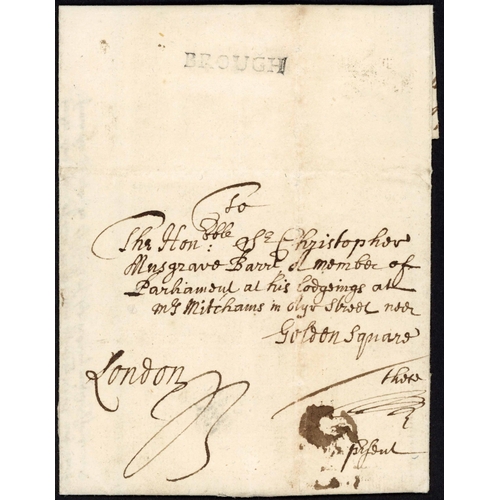 BROUGH
To
The Hon:bble Sr: Christopher
Musgrave Barrt, a member of
Parliament at his lodgeings at
Mrs Mitchams in street neer
Golden Square
London
these
present